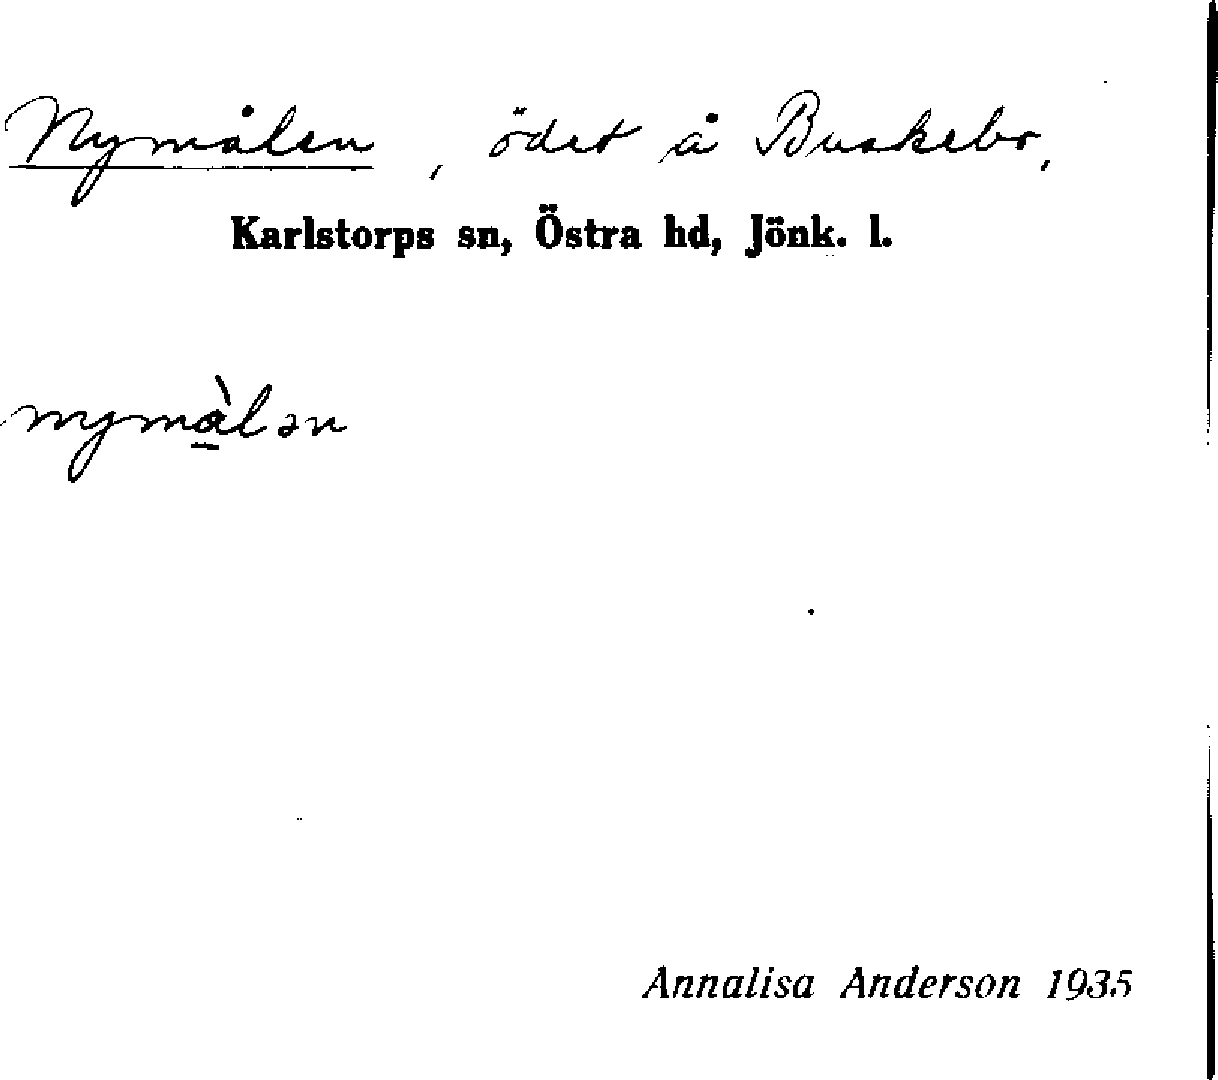 Nymålen, ödet å Buskebo,
Karlstorps sn, Östra hd, Jönk. l.
nymὰlən
Annalisa Anderson 1935